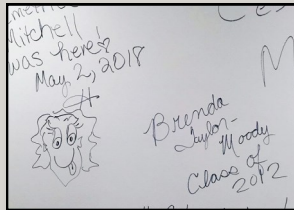 Mitchell
was here!
May 2, 2018
Brenda
Taylor-
Moody
Class of
2012